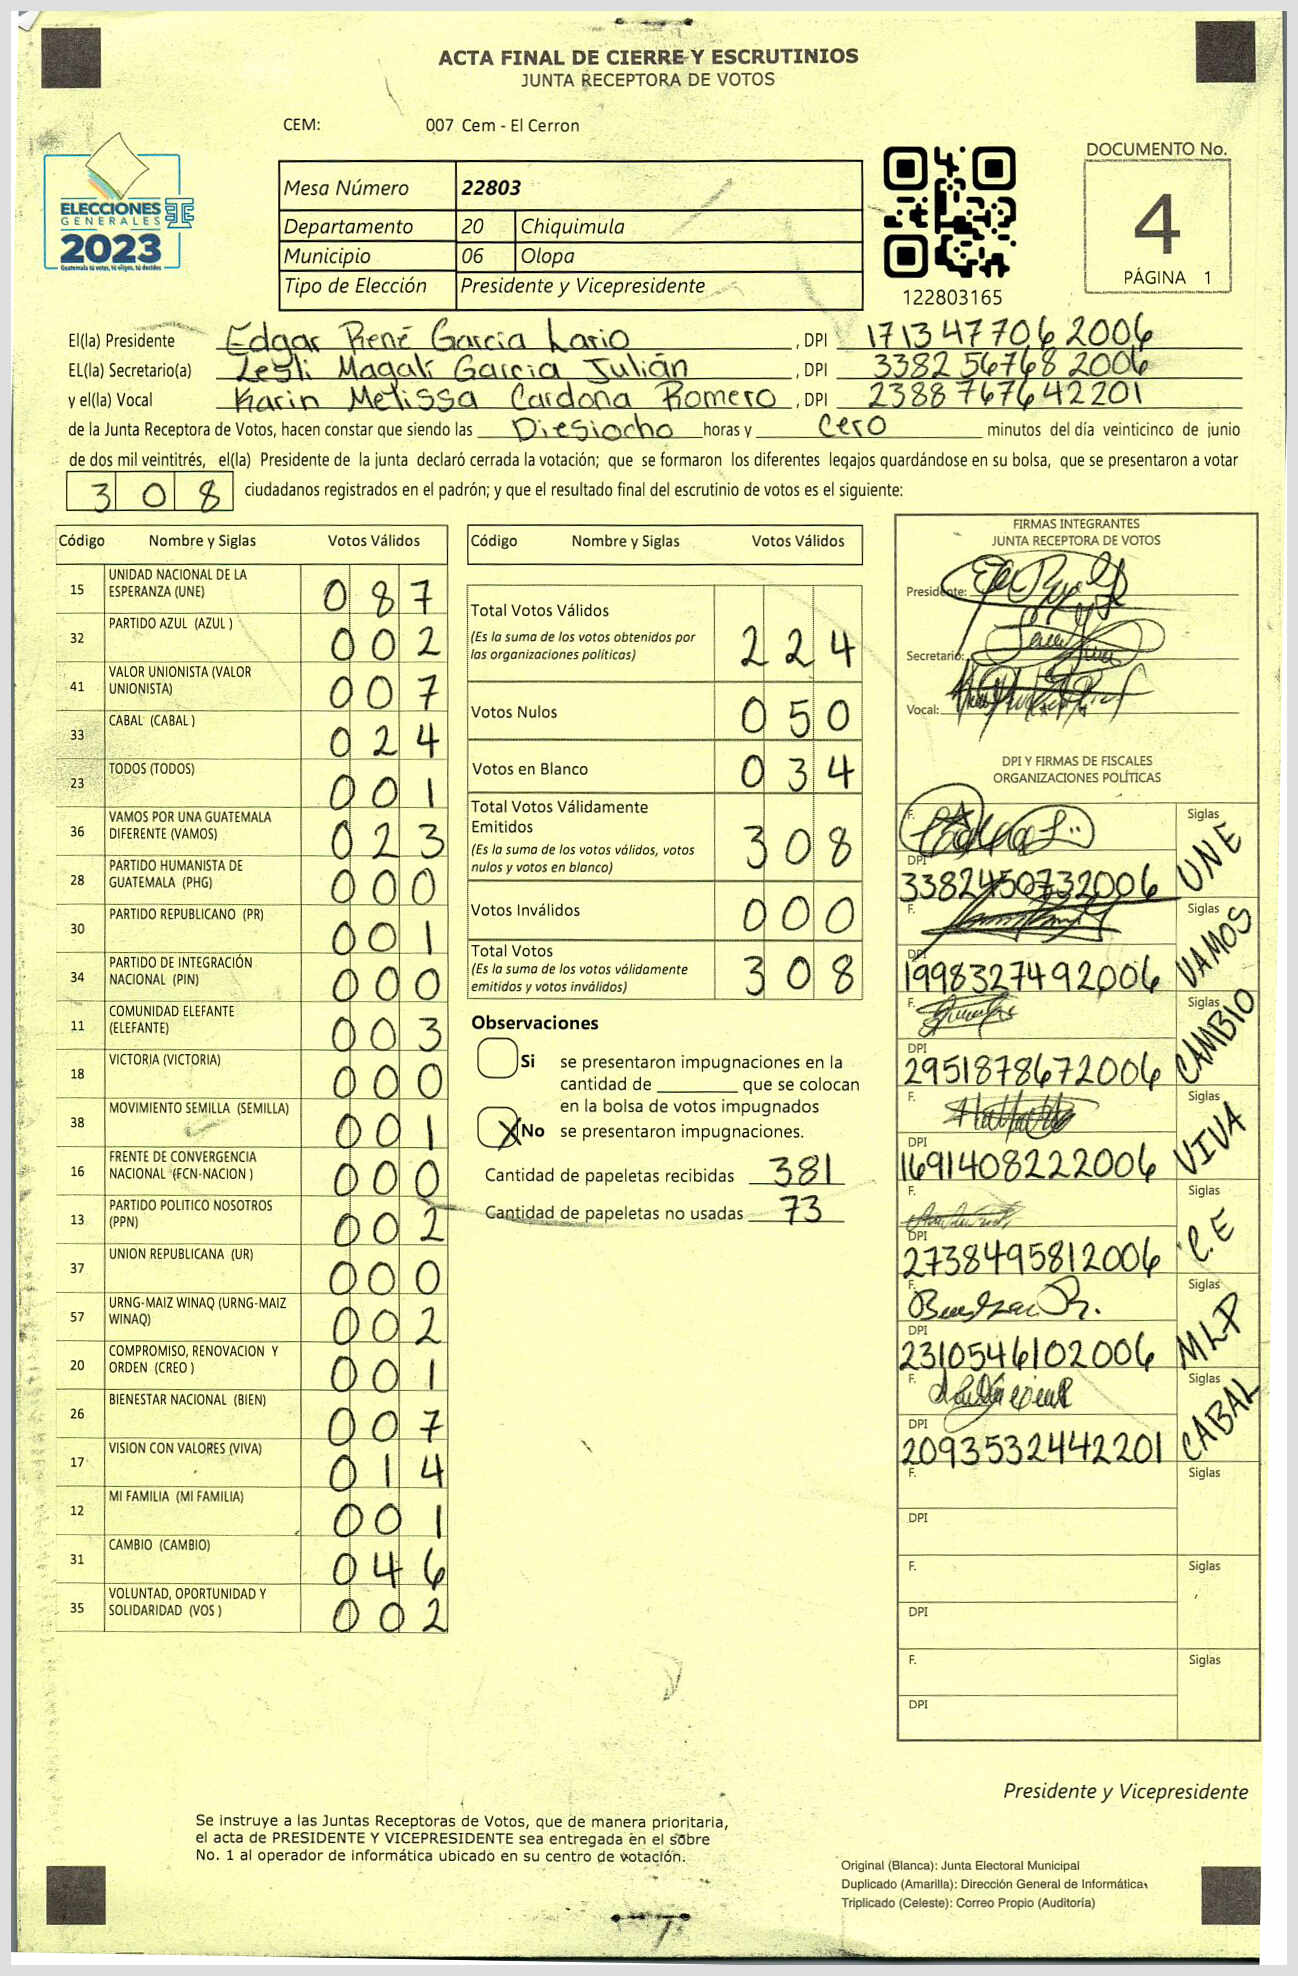 ACTA FINAL DE CIERRE Y ESCRUTINIOS
JUNTA RECEPTORA DE VOTOS
CEM: 007 Cem - El Cerron
ELECCIONES
GENERALES
2023
Guatemala tú votas, tú eliges, tú decides
Mesa Número 22803
Departamento 20 Chiquimula
Municipio 06 Olopa
Tipo de Elección Presidente y Vicepresidente
122803165
DOCUMENTO No.
4
PÁGINA 1
El(la) Presidente Edgar René García Lario , DPI 1713 47706 2006
EL(la) Secretario(a) Lesli Magalí García Julián , DPI 3382 56768 2006
y el(la) Vocal Karin Melissa Cardona Romero , DPI 2388 76764 2201
de la Junta Receptora de Votos, hacen constar que siendo las Diesiocho horas y cero minutos del día veinticinco de junio
de dos mil veintitrés, el(la) Presidente de la junta declaró cerrada la votación; que se formaron los diferentes legajos quardándose en su bolsa, que se presentaron a votar
308 ciudadanos registrados en el padrón; y que el resultado final del escrutinio de votos es el siguiente:
Código Nombre y Siglas Votos Válidos
15 UNIDAD NACIONAL DE LA ESPERANZA (UNE) 087
32 PARTIDO AZUL (AZUL ) 002
41 VALOR UNIONISTA (VALOR UNIONISTA) 007
33 CABAL (CABAL ) 024
23 TODOS (TODOS) 001
36 VAMOS POR UNA GUATEMALA DIFERENTE (VAMOS) 023
28 PARTIDO HUMANISTA DE GUATEMALA (PHG) 000
30 PARTIDO REPUBLICANO (PR) 001
34 PARTIDO DE INTEGRACIÓN NACIONAL (PIN) 000
11 COMUNIDAD ELEFANTE (ELEFANTE) 003
18 VICTORIA (VICTORIA) 000
38 MOVIMIENTO SEMILLA (SEMILLA) 001
16 FRENTE DE CONVERGENCIA NACIONAL (FCN-NACION ) 000
13 PARTIDO POLITICO NOSOTROS (PPN) 002
37 UNION REPUBLICANA (UR) 000
57 URNG-MAIZ WINAQ (URNG-MAIZ WINAQ) 002
20 COMPROMISO, RENOVACION Y ORDEN (CREO ) 001
26 BIENESTAR NACIONAL (BIEN) 007
17 VISION CON VALORES (VIVA) 014
12 MI FAMILIA (MI FAMILIA) 001
31 CAMBIO (CAMBIO) 046
35 VOLUNTAD, OPORTUNIDAD Y SOLIDARIDAD (VOS ) 002
Código Nombre y Siglas Votos Válidos
Total Votos Válidos 224
(Es la suma de los votos obtenidos por
las organizaciones políticas)
Votos Nulos 050
Votos en Blanco 034
Total Votos Válidamente
Emitidos 308
(Es la suma de los votos válidos, votos
nulos y votos en blanco)
Votos Inválidos 000
Total Votos 308
(Es la suma de los votos válidamente
emitidos y votos inválidos)
Observaciones
Si se presentaron impugnaciones en la
cantidad de ________ que se colocan
en la bolsa de votos impugnados
X No se presentaron impugnaciones.
Cantidad de papeletas recibidas 381
Cantidad de papeletas no usadas 73
FIRMAS INTEGRANTES
JUNTA RECEPTORA DE VOTOS
Presidente:
Secretario:
Vocal:
DPI Y FIRMAS DE FISCALES
ORGANIZACIONES POLÍTICAS
F. Siglas UNE
DPI 3382450732006
F. Siglas VAMOS
DPI 1998327492006
F. Siglas CAMBIO
DPI 2951878672006
F. Siglas VIVA
DPI 1691408222006
F. Siglas C.E
DPI 2738495812006
F. Siglas MLP
DPI 2310546102006
F. Siglas CABAL
DPI 2093532442201
F. Siglas
DPI
F. Siglas
DPI
F. Siglas
DPI
Presidente y Vicepresidente
Se instruye a las Juntas Receptoras de Votos, que de manera prioritaria,
el acta de PRESIDENTE Y VICEPRESIDENTE sea entregada en el sobre
No. 1 al operador de informática ubicado en su centro de votación.
Original (Blanca): Junta Electoral Municipal
Duplicado (Amarilla): Dirección General de Informática
Triplicado (Celeste): Correo Propio (Auditoría)